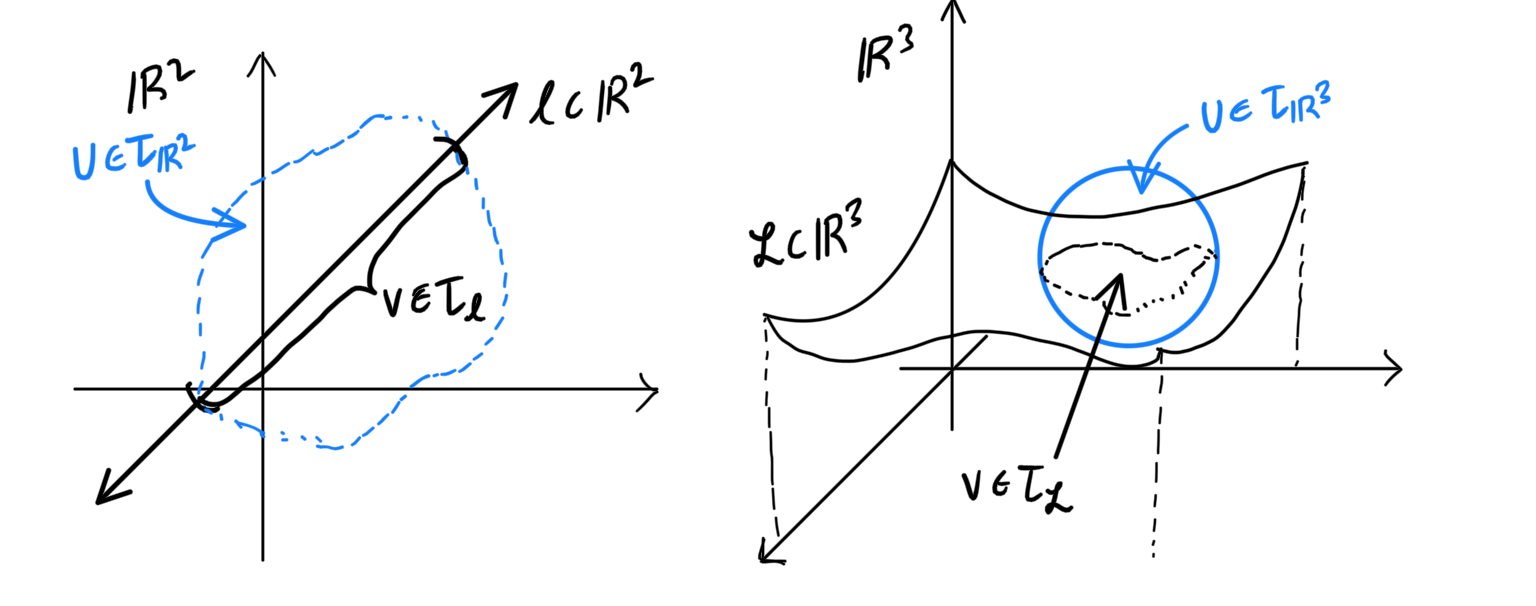 ℝ²
U ∈ τ_ℝ²
ℓ ⊂ ℝ²
V ∈ τ_ℓ
ℝ³
U ∈ τ_ℝ³
ℒ ⊂ ℝ³
V ∈ τ_ℒ